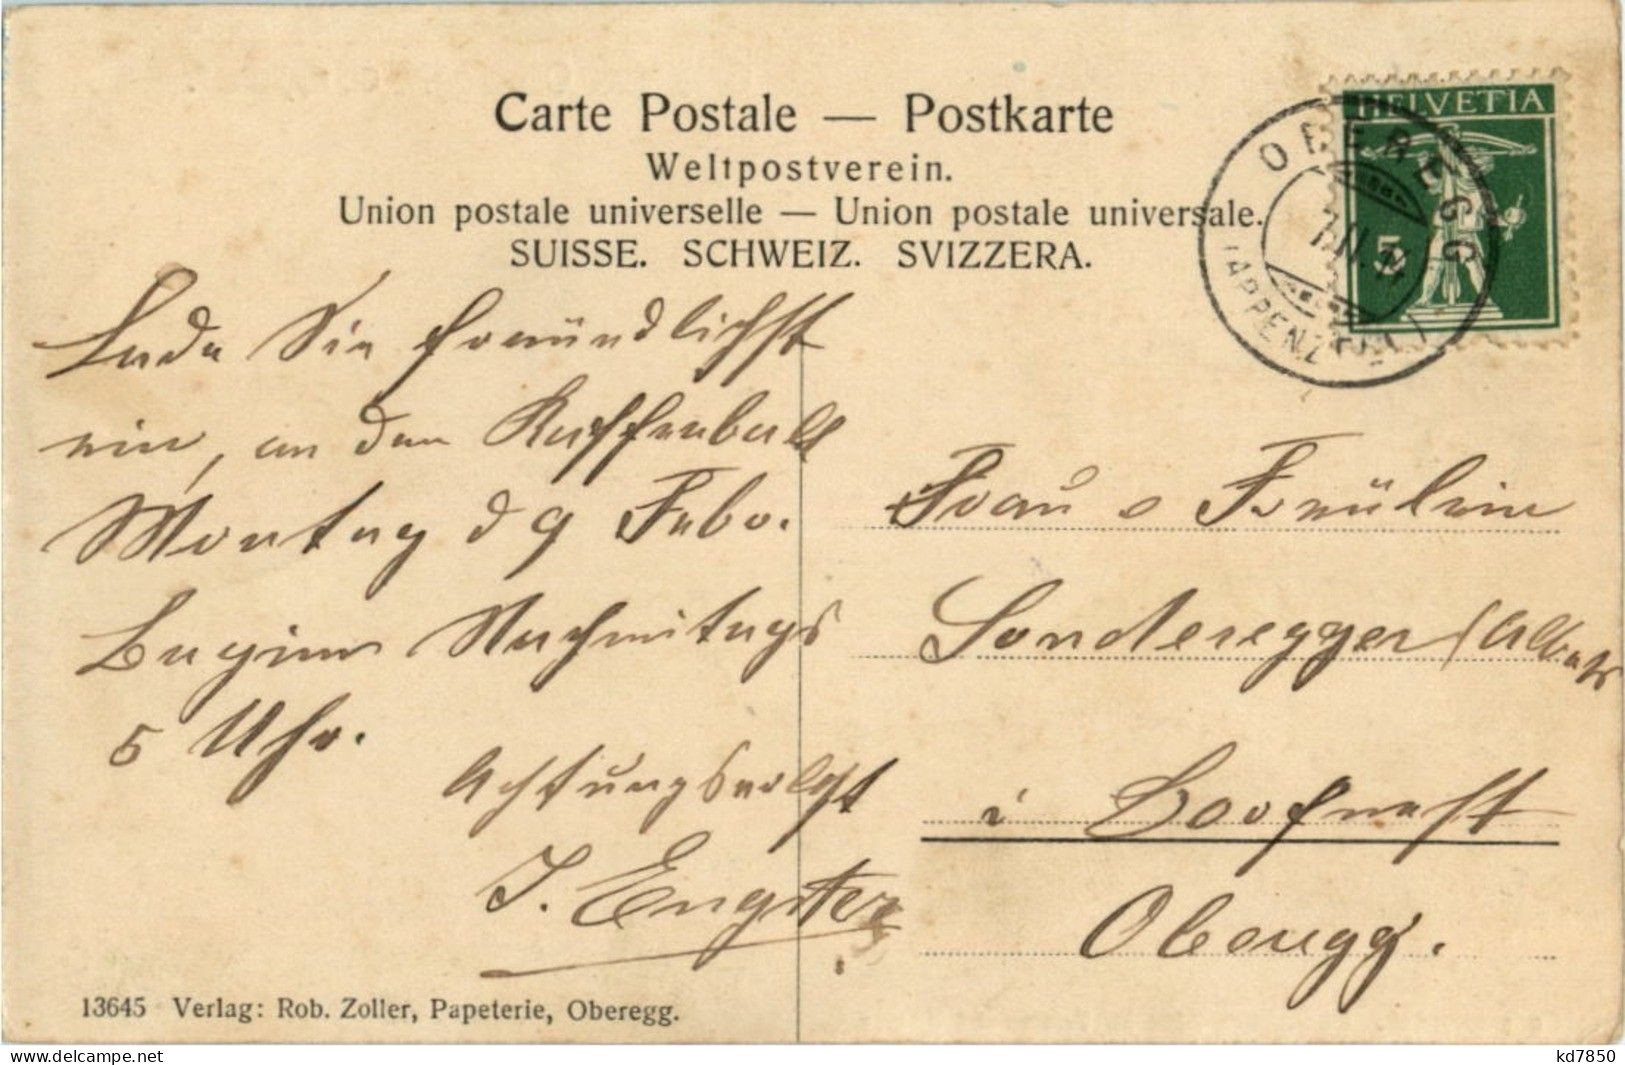 Carte Postale — Postkarte
Weltpostverein.
Union postale universelle — Union postale universale.
SUISSE. SCHWEIZ. SVIZZERA.
HELVETIA
5
OBEREGG
(APPENZELL)
Lade Sie freundlichst
ein, an den Kaffeeball
Montag d 9 Febr.
Beginn Nachmitags
5 Uhr.
Achtungsvollst
J. Engster
Frau & Fräulein
Sonderegger
i Dorf
Oberegg.
13645 Verlag: Rob. Zoller, Papeterie, Oberegg.
kd7850
www.delcampe.net